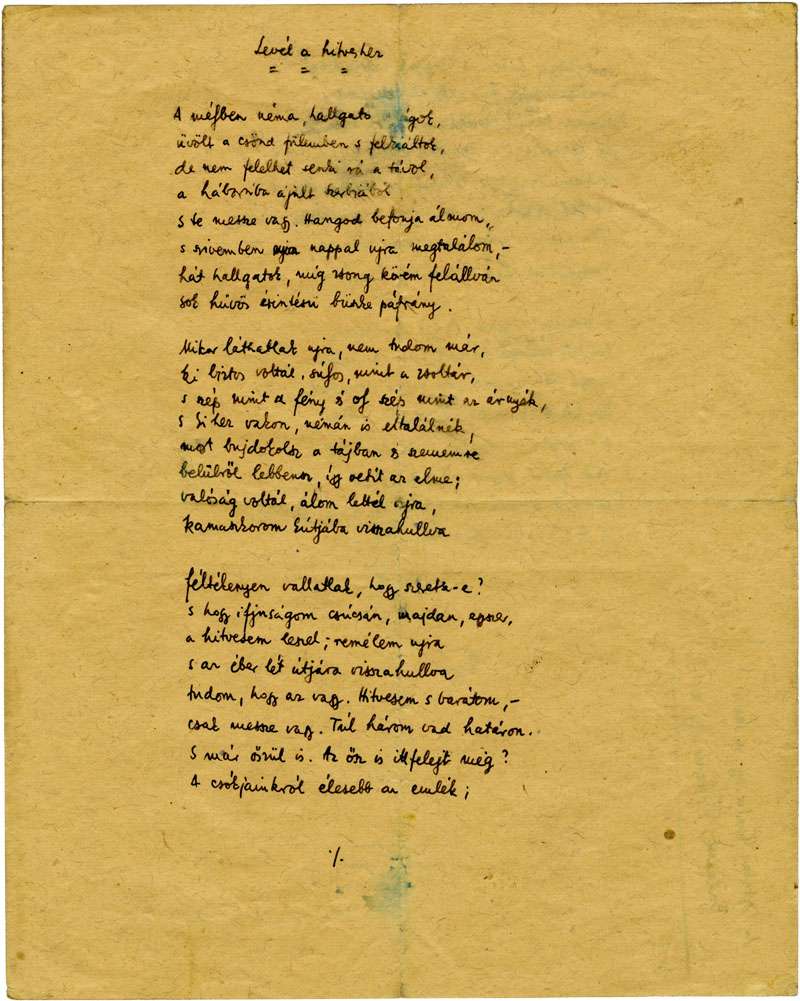 Levél a hitveshez
A mélyben néma, hallgató világok,
üvölt a csönd fülemben s felkiáltok,
de nem felelhet senki rá a távol,
a háborúba ájult Szerbiából
s te messze vagy. Hangod befonja álmom,
s szivemben nappal ujra megtalálom, –
hát hallgatok, míg zsong körém felállván
sok hűvös érintésü büszke páfrány.
Mikor láthatlak ujra, nem tudom már,
ki biztos voltál, súlyos, mint a zsoltár,
s szép mint a fény s oly szép mint az árnyék,
s kihez vakon, némán is eltalálnék,
most bujdokolsz a tájban s szememre
belülről lebbensz, így vetít az elme;
valóság voltál, álom lettél ujra,
kamaszkorom kútjába visszahullva
féltékenyen vallatlak, hogy szeretsz-e?
s hogy ifjuságom csúcsán, majdan, egyszer,
a hitvesem leszel, – remélem ujra
s az éber lét útjára visszahullva
tudom, hogy az vagy. Hitvesem s barátom, –
csak messze vagy. Túl három vad határon.
S már őszül is. Az ősz is ittfelejt még?
A csókjainkról élesebb az emlék;
·/.